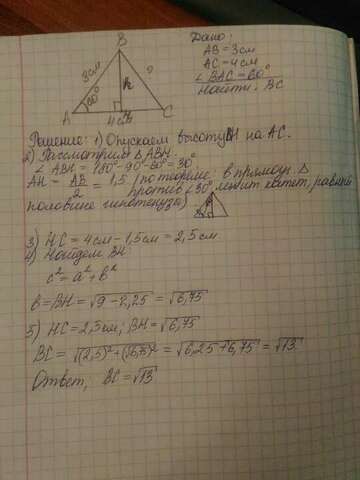 B
Дано:
AB = 3 см
AC = 4 см
∠BAC = 60°
Найти: BC
3 см
h
?
A
60°
4 см
C
Решение: 1) Опускаем высоту BH на AC.
2) Рассмотрим △ABH.
∠ABH = 180° - 90° - 60° = 30°
AH = AB/2 = 1,5 (по теореме: в прямоуг. △
против ∠30° лежит катет, равный
половине гипотенузы)
3) HC = 4 см - 1,5 см = 2,5 см
4) Найдем BH:
c² = a² + b²
b = BH = √9 - 2,25 = √6,75
5) HC = 2,5 см; BH = √6,75
BC = √(2,5)² + (√6,75)² = √6,25 + 6,75 = √13
Ответ: BC = √13